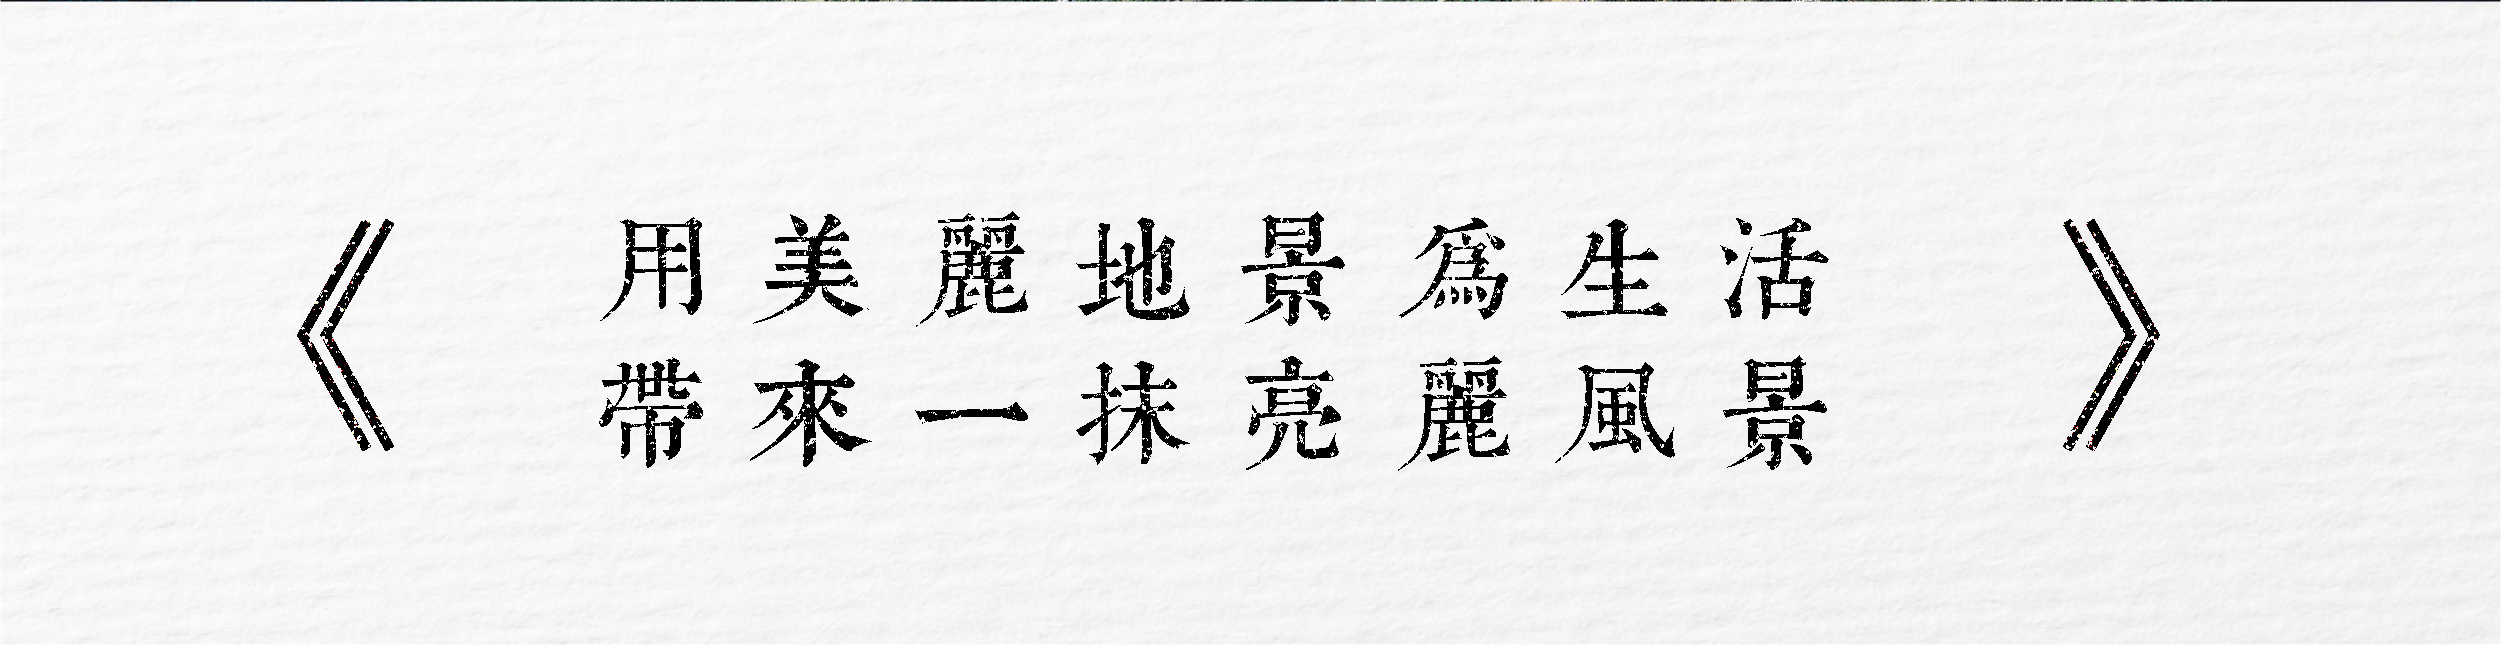 《用美麗地景爲生活
帶來一抹亮麗風景》